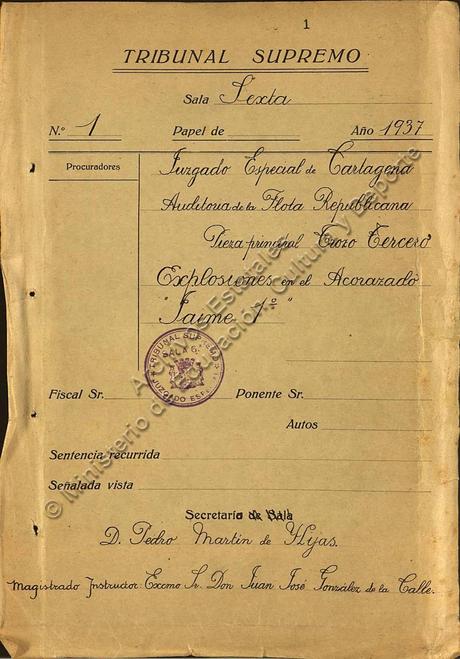 1
TRIBUNAL SUPREMO
Sala Sexta
N.º 1 Papel de Año 1937
Procuradores
Juzgado Especial de Cartagena
Auditoria de la Flota Republicana
Pieza principal Trozo Tercero
Explosiones en el Acorazado
"Jaime 1º"
TRIBUNAL SUPREMO
SALA 6
JUZGADO ESPE
Fiscal Sr. Ponente Sr.
Autos
Sentencia recurrida
Señalada vista
Secretario de Sala
D. Pedro Martin de Hijas.
Magistrado Instructor Excmo Sr. Don Juan José González de la Calle.
© Ministerio de Educación, Cultura y Deporte
Archivos Estatales